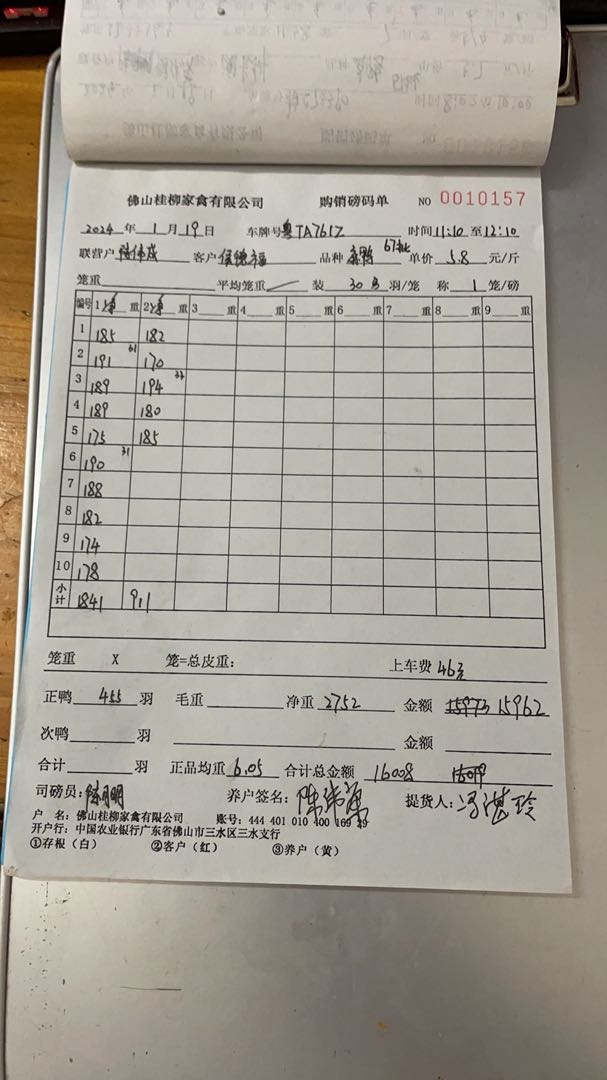 佛山桂柳家禽有限公司 购销磅码单 NO 0010157
2024 年 1 月 19 日 车牌号 粤TA761Z 时间 11:10 至 12:10
联营户 客户 侯德福 品种 67批 单价 5.8 元/斤
笼重 平均笼重 装 30 羽/笼 称 1 笼/磅
编号 1 净 重 2 净 重 3 重 4 重 5 重 6 重 7 重 8 重 9 重
1 185 182
2 191 31 170
3 189 194 33
4 189 180
5 175 185
6 190 31
7 188
8 182
9 174
10 178
小计 1841 911
笼重 X 笼=总皮重: 上车费 46元
正鸭 455 羽 毛重 净重 2752 金额 15973 15962
次鸭 羽 金额
合计 羽 正品均重 6.05 合计总金额 16008 16019
司磅员: 养户签名: 提货人:
户 名: 佛山桂柳家禽有限公司 账号: 444 401 010 400 169 39
开户行: 中国农业银行广东省佛山市三水区三水支行
①存根(白) ②客户(红) ③养户(黄)